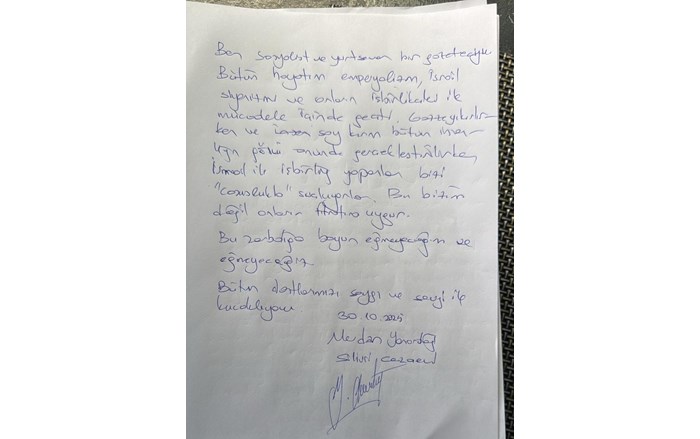 Ben sosyalist ve yurtsever bir gazeteciyim
Bütün hayatım emperyalizm, İsrail
siyonizmi ve onların işbirlikçileri ile
mücadele içinde geçti. Gazze yıkılır-
ken ve insan soy kırım bütün insan-
lığın gözü önünde gerçekleştirilirken,
İsrail ile işbirliği yapanlar bizi
"casuslukla" suçluyorlar. Bu bizim
değil onların fıtratına uygun.
Bu zorbalığa boyun eğmeyeceğim ve
eğmeyeceğiz.
Bütün dostlarımızı saygı ve sevgi ile
kucaklıyorum
30.10.2025
Merdan Yanardağ
Silivri Cezaevi